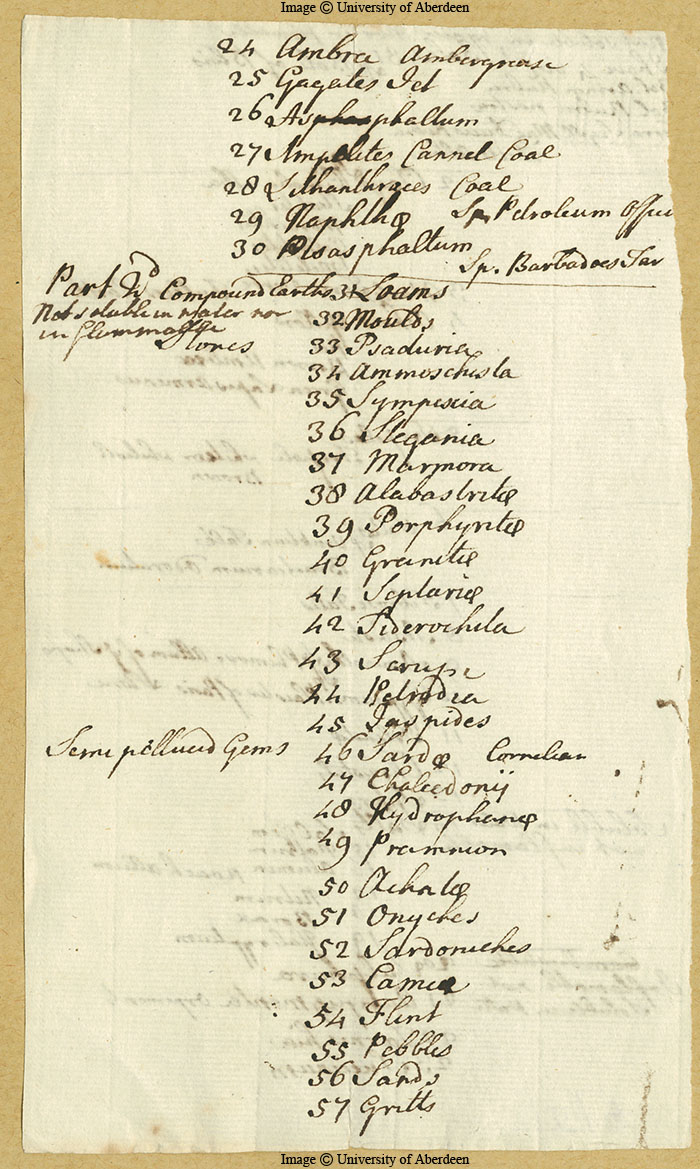 Image © University of Aberdeen
24 Ambra Ambergrease
25 Gagates Jet
26 Asphaltum
27 Ampelites Cannel Coal
28 Lithanthraces Coal
29 Naphthæ Sp. Petroleum
30 Pisasphaltum
Sp. Barbadoes Tar
Part 2d Compound Earths 31 Loams
Not soluble in Water nor
in flammable
32 Moulds
Stones
33 Psaduria
34 Ammoschista
35 Sympexia
36 Stegania
37 Marmora
38 Alabastritæ
39 Porphyritæ
40 Granitæ
41 Septariæ
42 Siderochita
43
44 Petrodia
45 Jaspides
Semipellucid Gems 46 Sardæ Cornelian
47 Chalcedonij
48 Hydrophanæ
49 Pramnion
50 Achatæ
51 Onyches
52 Sardonyches
53 Cameæ
54 Flint
55 Pebbles
56 Sands
57 Gritts
Image © University of Aberdeen